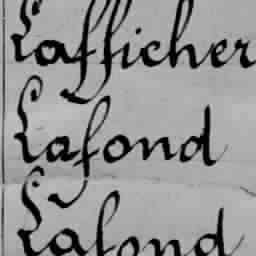 Lafficher
Lafond
Lafond